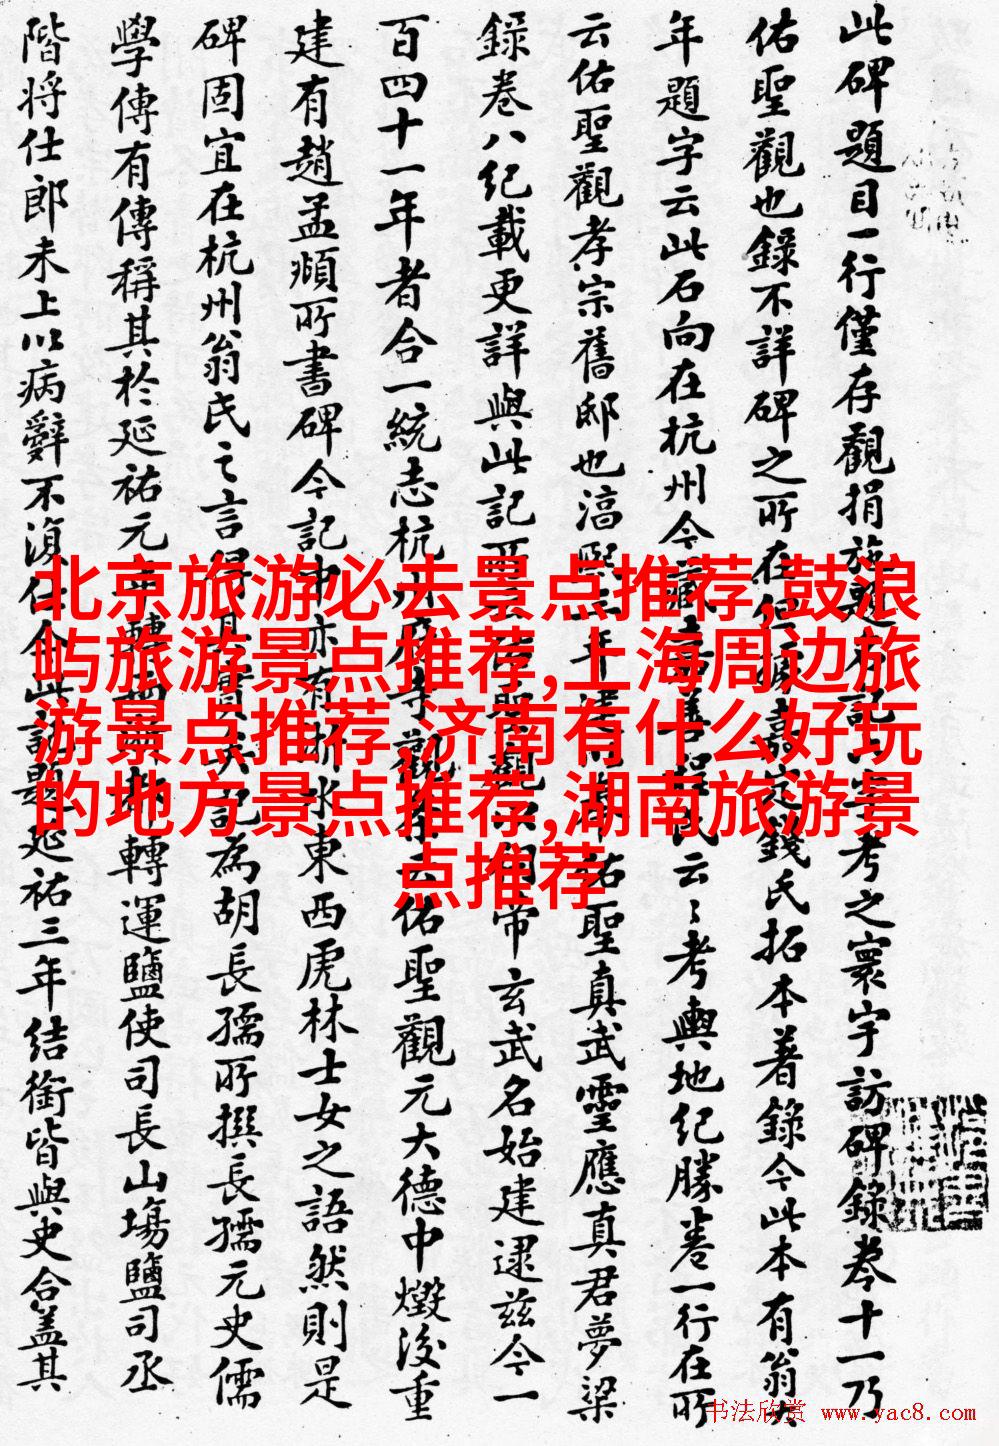 此碑題目一行僅存觀捐施題名記五字考之寰宇訪碑錄卷十一乃
佑聖觀也錄不詳碑之所在但據嘉定錢氏拓本著錄今此本有翁大
年題字云此石向在杭州今藏吾氏云〻考輿地紀勝卷一行在所
云佑聖觀孝宗舊邸也淳熙三年建以奉佑聖真武靈應真君夢梁
錄卷八紀載更詳與此記西云佑聖觀以祠帝玄武名始建逮茲今一
百四十一年者合一統志杭州府寺觀存云佑聖觀元大德中燬後重
建有趙孟頫所書碑今記中亦有浙水東西虎林士女之語然則是
碑固宜在杭州翁氏之言得其實矣記為胡長孺所撰長孺元史儒
學傳有傳稱其於延祐元年轉兩浙都轉運鹽使司長山場鹽司丞
階將仕郎未上以病辭不復仕今此記題延祐三年結銜皆與史合蓋其
北京旅游必去景点推荐,鼓浪
屿旅游景点推荐,上海周边旅
游景点推荐,济南有什么好玩
的地方景点推荐,湖南旅游景
点推荐
书法欣赏 www.yac8.com